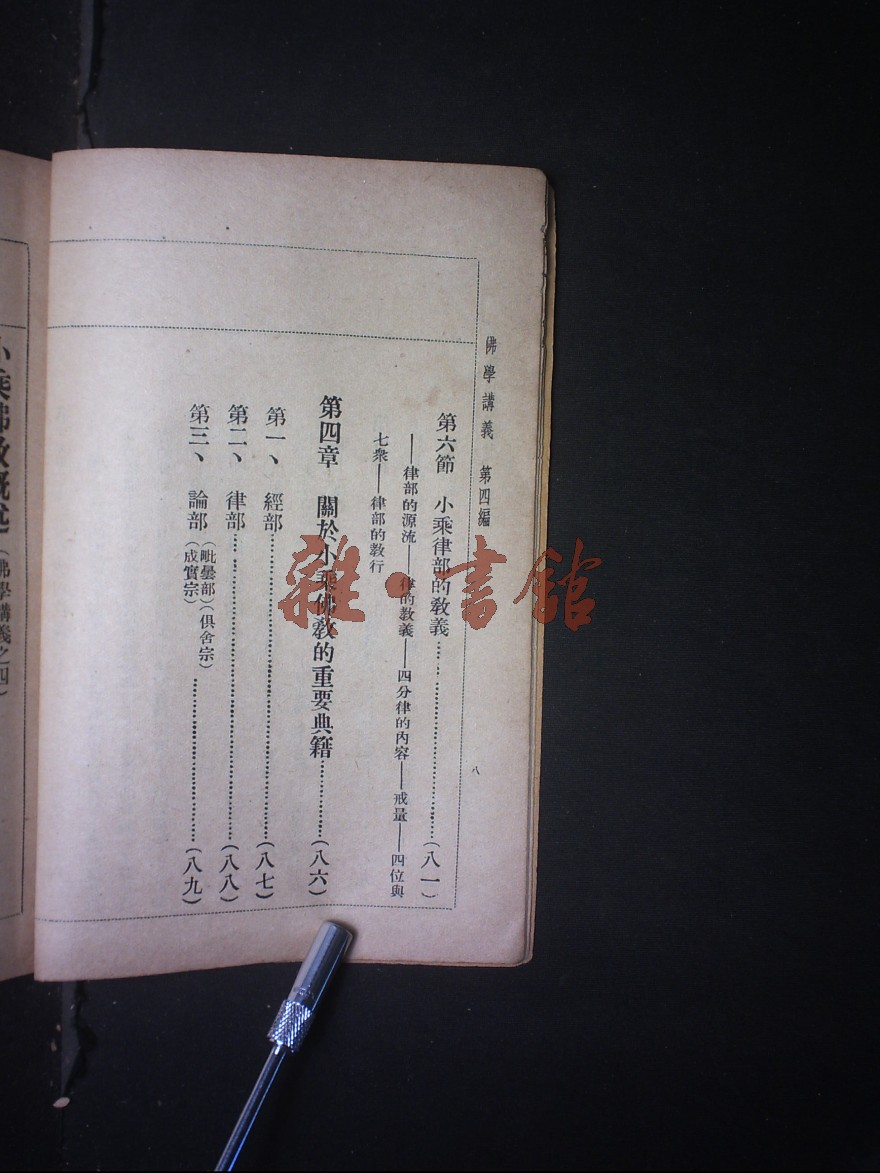 佛學講義 第四編
八
第六節 小乘律部的敎義……(八一)
——律部的源流——律的敎義——四分律的內容——戒量——四位與
七衆——律部的敎行
第四章 關於小乘佛敎的重要典籍……(八六)
第一、 經部……(八七)
第二、 律部……(八八)
第三、 論部(毗曇部)(俱舍宗)(成實宗)……(八九)
小乘佛敎概述(佛學講義之四)
雜·書館